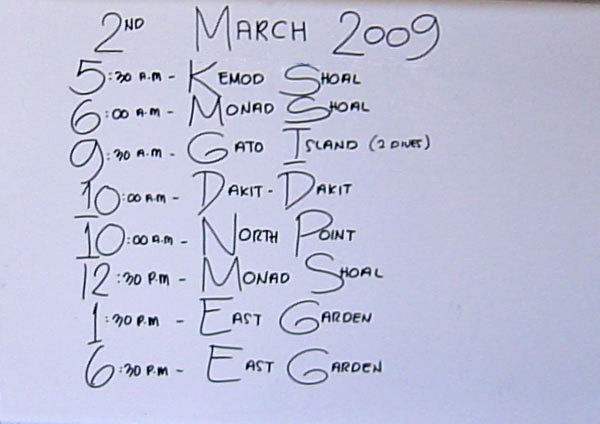 2ND MARCH 2009
5:30 A.M - KEMOD SHOAL
6:00 A.M - MONAD SHOAL
9:30 A.M - GATO ISLAND (2 DIVES)
10:00 A.M - DAKIT-DAKIT
10:00 A.M - NORTH POINT
12:30 P.M - MONAD SHOAL
1:30 P.M - EAST GARDEN
6:30 P.M - EAST GARDEN